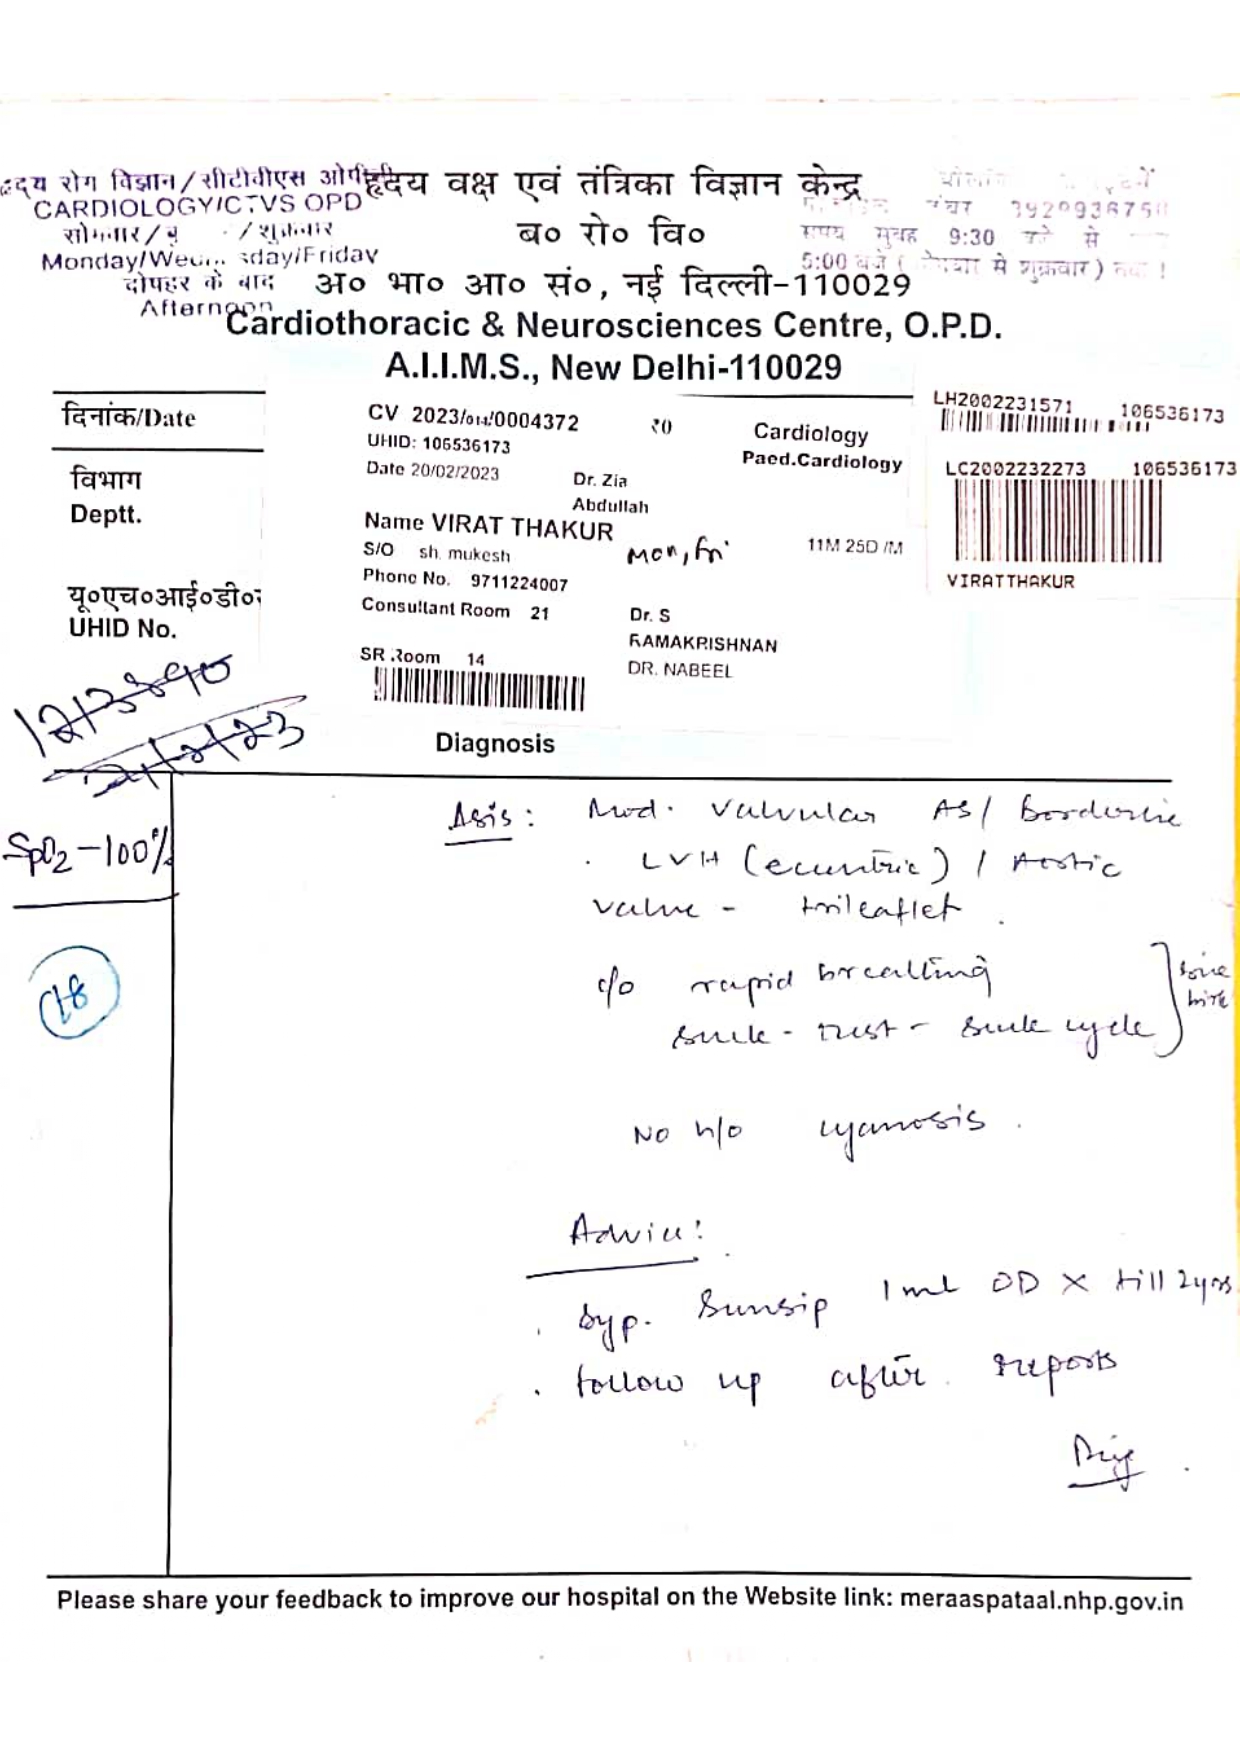 हृदय रोग विज्ञान/सीटीवीएस ओपीडी
CARDIOLOGY/CTVS OPD
सोमवार/बु /शुक्रवार
Monday/Wednesday/Friday
दोपहर के बाद
Afternoon
हृदय वक्ष एवं तंत्रिका विज्ञान केन्द्र
ब० रो० वि०
अ० भा० आ० सं०, नई दिल्ली-110029
समय सुबह 9:30 बजे से
5:00 बजे (सोमवार से शुक्रवार) तक !
Cardiothoracic & Neurosciences Centre, O.P.D.
A.I.I.M.S., New Delhi-110029
दिनांक/Date
विभाग
Deptt.
यू०एच०आई०डी०
UHID No.
CV 2023/014/0004372 ₹0
UHID: 106536173
Date 20/02/2023
Cardiology
Paed.Cardiology
Dr. Zia
Abdullah
Name VIRAT THAKUR
S/O sh. mukesh
Mon, Fri
11M 25D /M
Phone No. 9711224007
Consultant Room 21
Dr. S
RAMAKRISHNAN
SR Room 14
DR. NABEEL
LH2002231571 106536173
LC2002232273 106536173
VIRATTHAKUR
Diagnosis
SpO2 - 100%
Δsis: Mod. Valvular AS / Borderline
LVH (eccentric) / Aortic
valve - trileaflet.
c/o rapid breathing
suck - rest - suck cycle
since
birth
No h/o cyanosis.
Advice:
. Syp. Sunsip 1 ml OD X till 2yrs
. follow up after reports
Please share your feedback to improve our hospital on the Website link: meraaspataal.nhp.gov.in